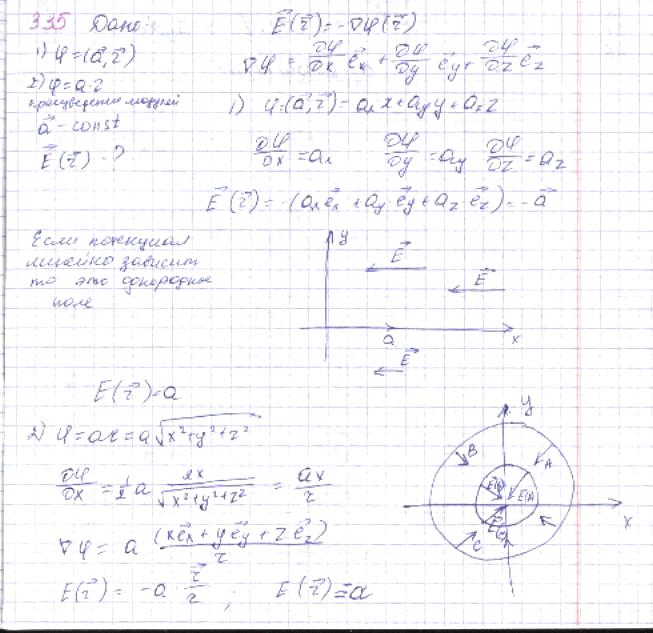 335 Дано:
1) φ=(a⃗,r⃗)
2) φ=a·r
произведение модулей
a⃗ - const
E⃗(r⃗) - ?
E⃗(r⃗)=-∇φ(r⃗)
∇φ = ∂φ/∂x e⃗x + ∂φ/∂y e⃗y + ∂φ/∂z e⃗z
1) φ=(a⃗,r⃗)=axx+ayy+azz
∂φ/∂x=ax ∂φ/∂y=ay ∂φ/∂z=az
E⃗(r⃗)=-(axe⃗x+ay·e⃗y+az·e⃗z)=-a⃗
Если потенциал
линейно зависит
то это однородное
поле
y
E⃗
E⃗
a x
E⃗
E(r⃗)=a
2) φ=ar=a√x²+y²+z²
∂φ/∂x=1/2 a 2x/√x²+y²+z² = ax/r
∇φ = a (xe⃗x+ye⃗y+ze⃗z)/r
E(r⃗) = -a r⃗/r ; E(r⃗)=a
y
B
A
E(B)
E(A)
x
C